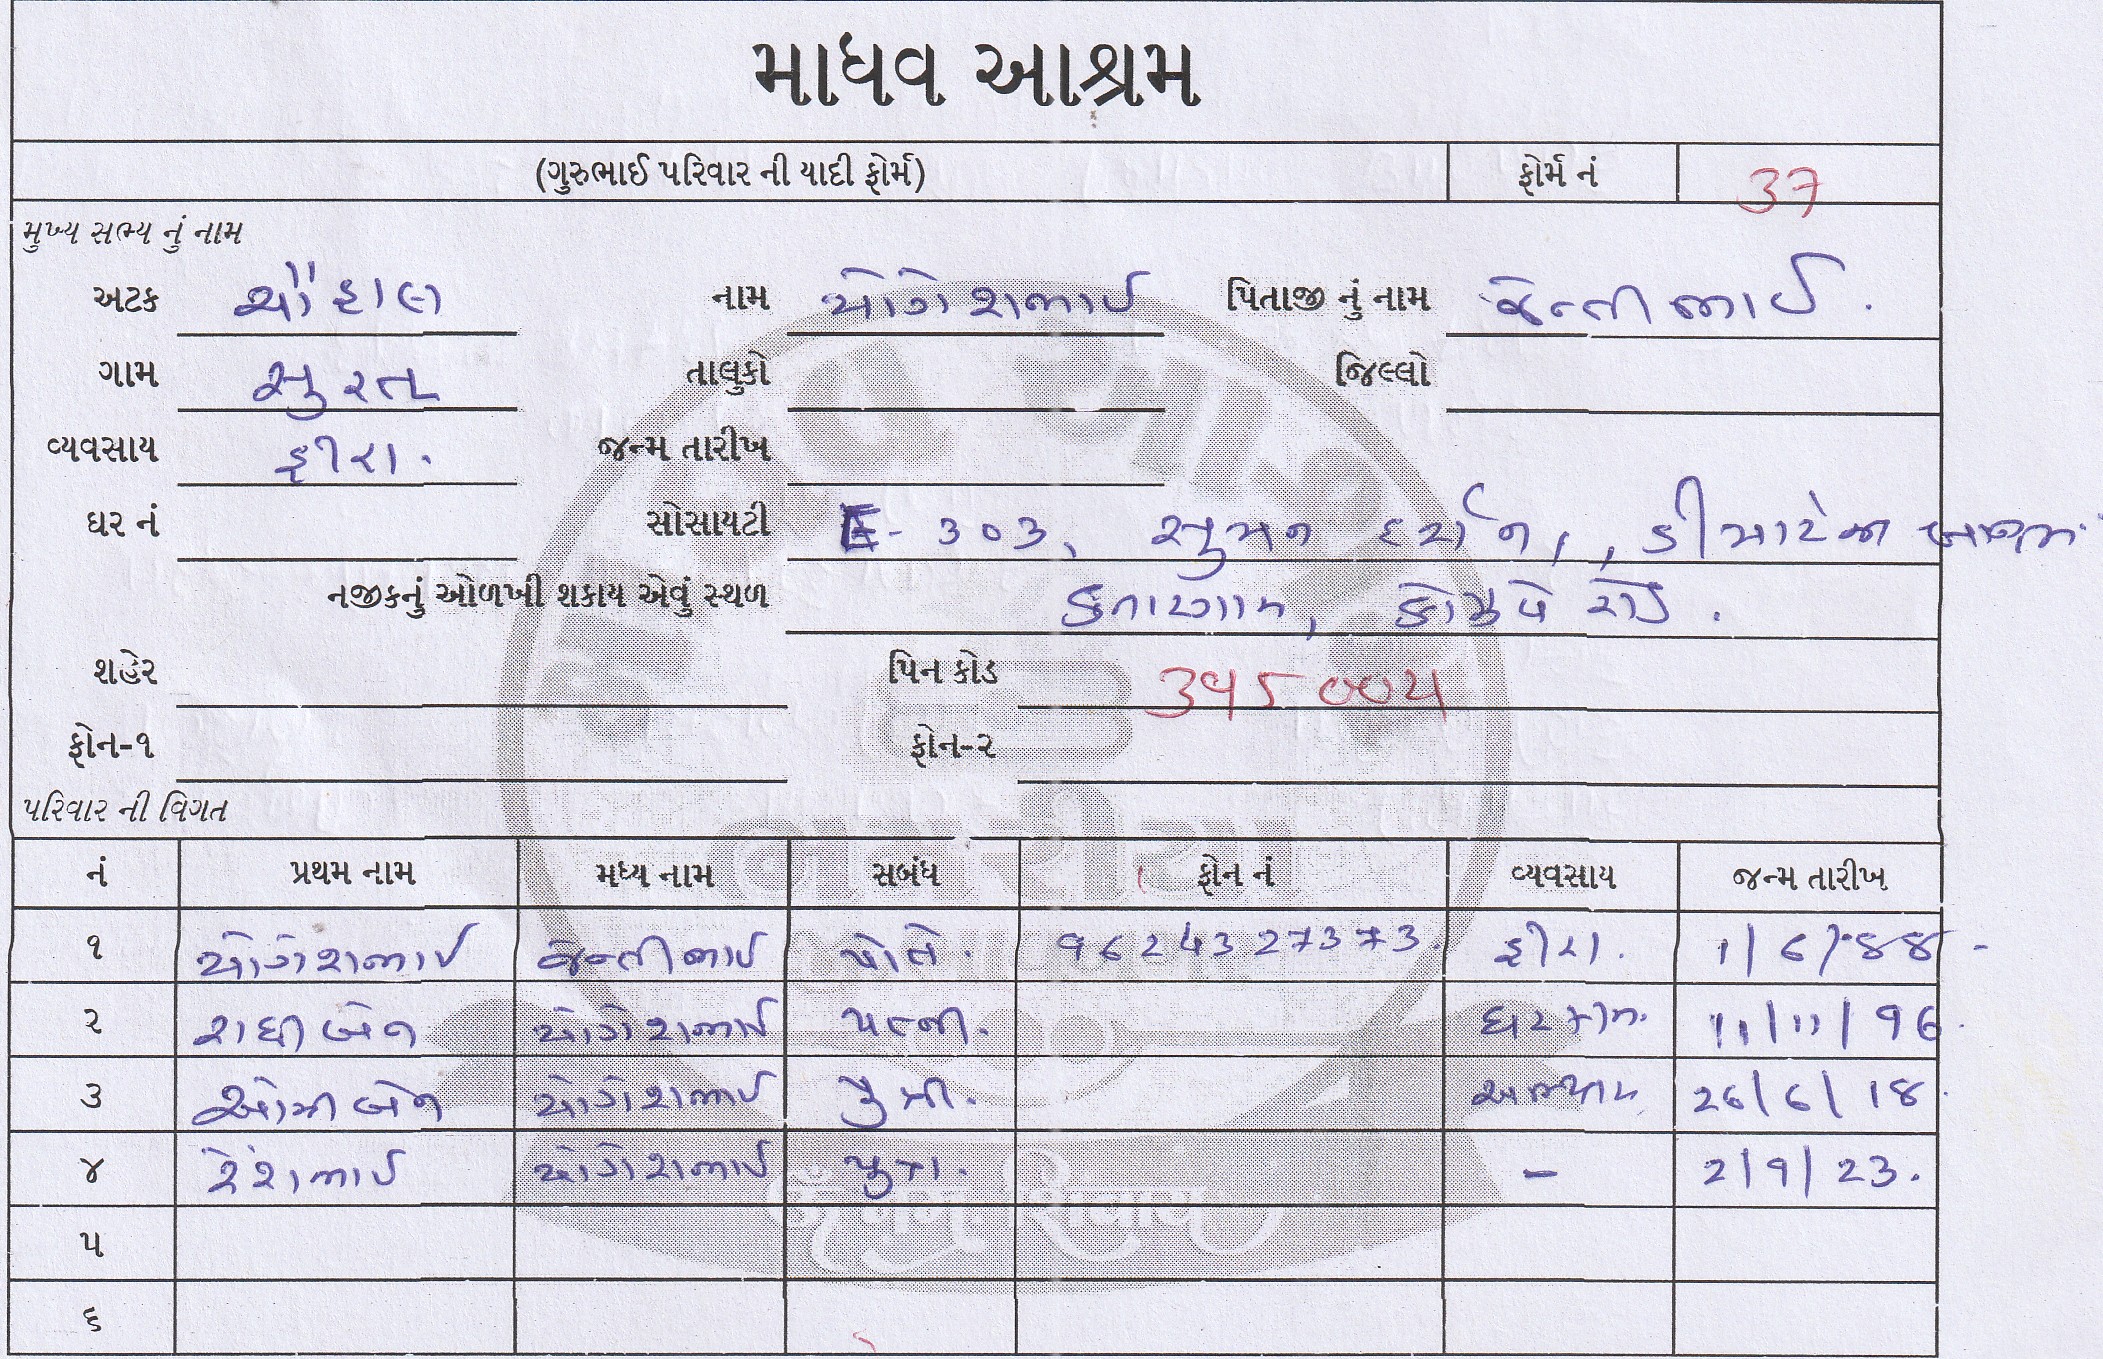 માધવ આશ્રમ
(ગુરુભાઈ પરિવાર ની યાદી ફોર્મ) ફોર્મ નં 37
મુખ્ય સભ્ય નું નામ
અટક ચૌહાણ નામ યોગેશભાઈ પિતાજી નું નામ જેન્તીભાઈ.
ગામ સુરત તાલુકો જિલ્લો
વ્યવસાય હીરા. જન્મ તારીખ
ઘર નં સોસાયટી E-303, સુમન દર્શન, ડીમાર્ટની બાજુમાં
નજીકનું ઓળખી શકાય એવું સ્થળ કતારગામ, કોઝવે રોડ.
શહેર પિન કોડ
ફોન-૧ ફોન-૨
પરિવાર ની વિગત
નં પ્રથમ નામ મધ્ય નામ સબંધ ફોન નં વ્યવસાય જન્મ તારીખ
૧ યોગેશભાઈ જેન્તીભાઈ પોતે. 9624327373. હીરા. 1/6/88
૨ રાધીબેન યોગેશભાઈ પત્ની. ઘરકામ. 11/11/96.
૩ યોગેશભાઈ પુત્રી. અભ્યાસ 26/6/18.
૪ યોગેશભાઈ પુત્ર. - 2/9/23.
૫
૬